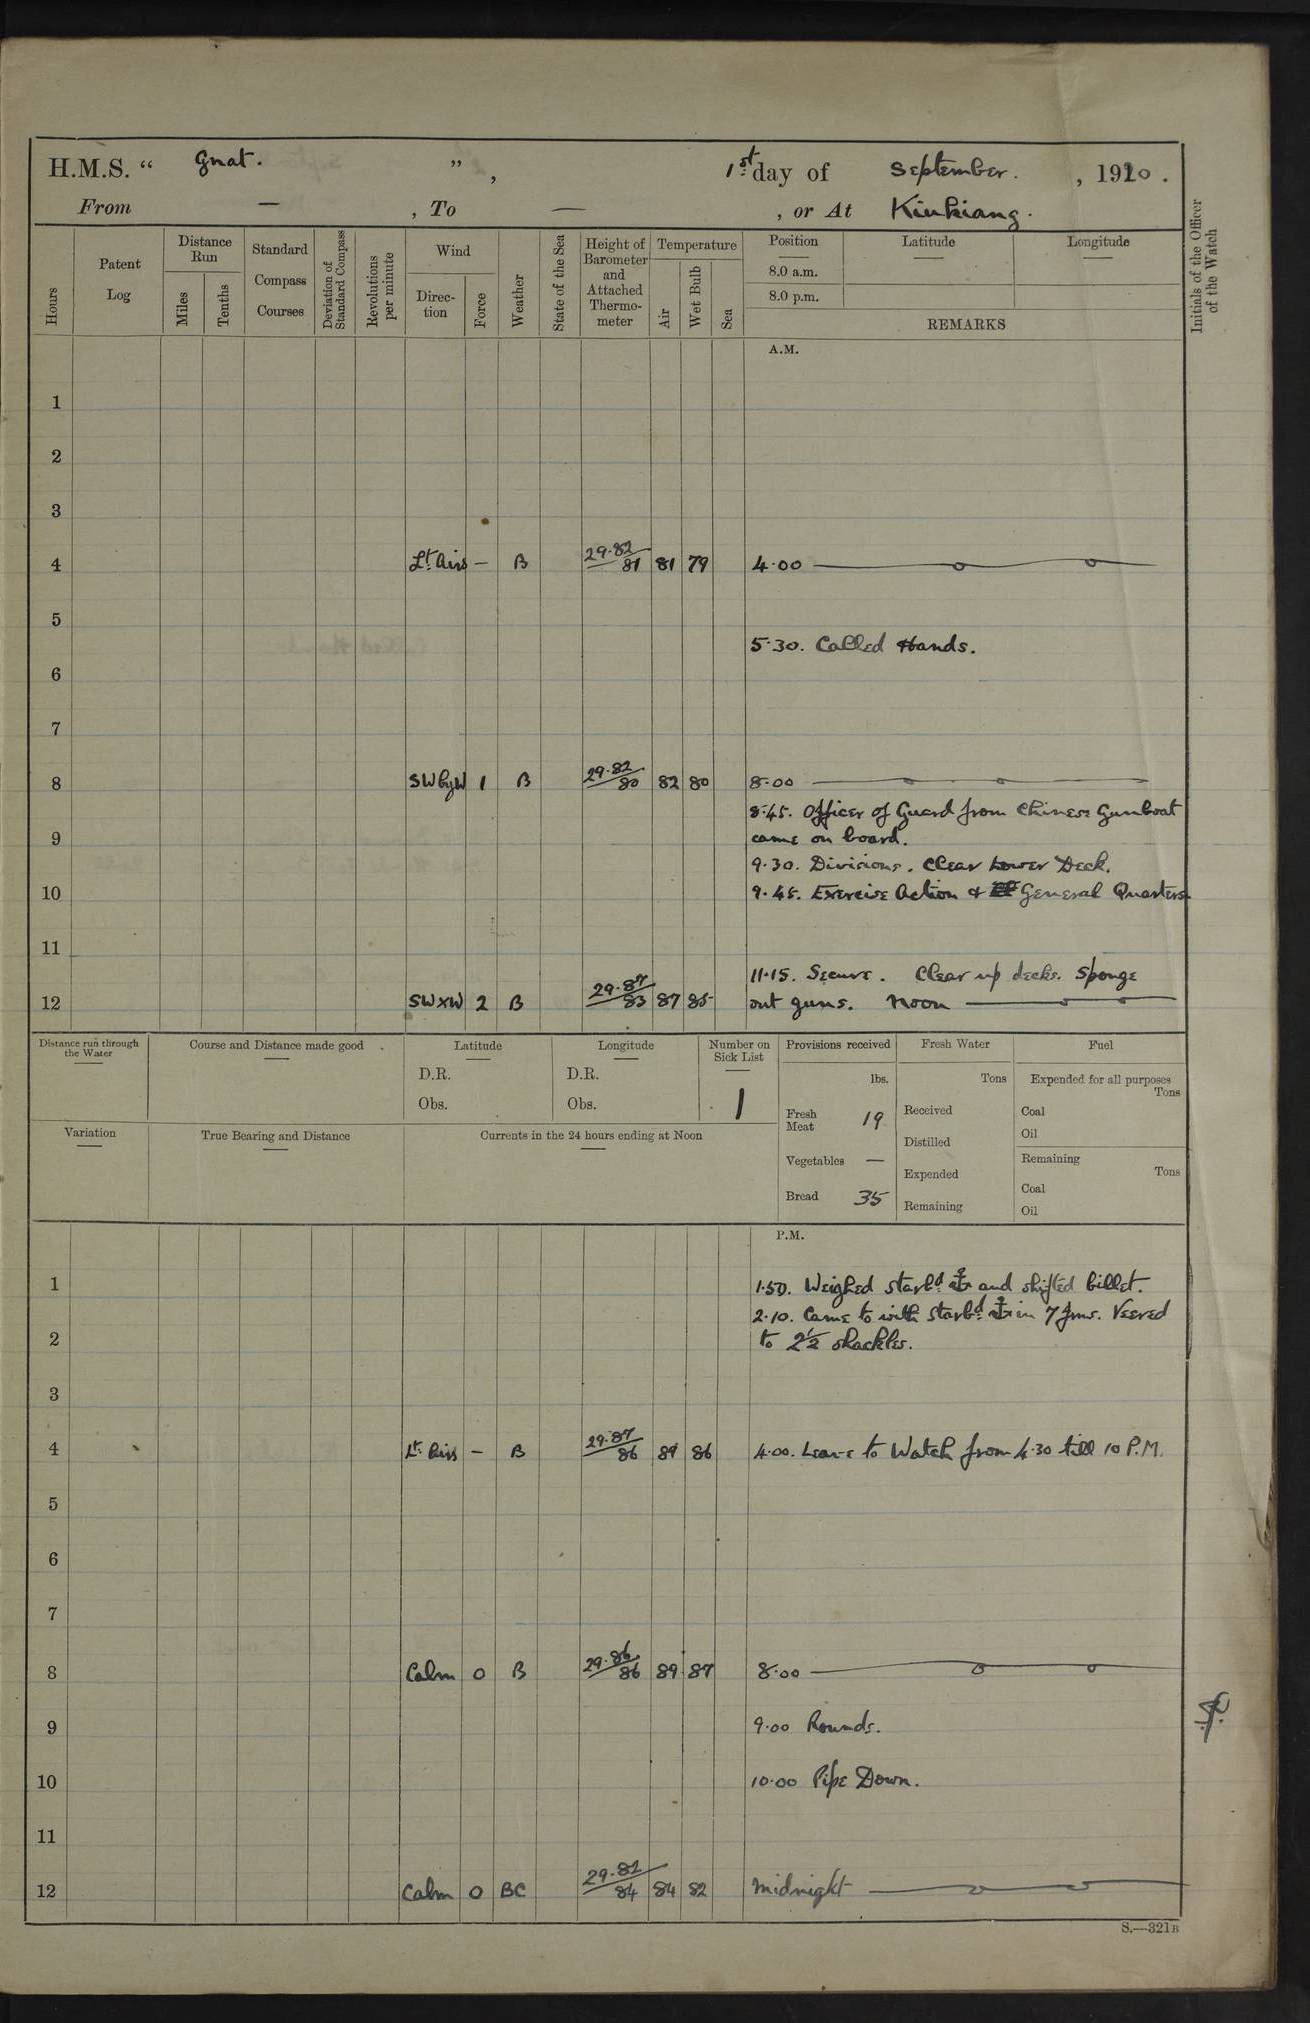 H.M.S. " Gnat. ", 1st day of September. , 1920 .
From — , To — , or At Kiukiang.
Hours
Patent Log
Distance Run
Miles
Tenths
Standard Compass Courses
Deviation of Standard Compass
Revolutions per minute
Wind
Direction
Force
Weather
State of the Sea
Height of Barometer and Attached Thermometer
Temperature
Air
Wet Bulb
Sea
Position
8.0 a.m.
8.0 p.m.
Latitude
Longitude
REMARKS
Initials of the Officer of the Watch
A.M.
1
2
3
4 Lt. Airs — B 29.82/81 81 79 4.00
5
5.30. Called Hands.
6
7
8 SWbyW 1 B 29.82/80 82 80 8.00
8.45. Officer of Guard from Chinese Gunboat
9 came on board.
9.30. Divisions. Clear Lower Deck.
10 9.45. Exercise Action & General Quarters
11
11.15. Secure. Clear up decks. Sponge
12 SWxW 2 B 29.87/83 87 85 out guns. Noon
Distance run through the Water
Course and Distance made good
Latitude
D.R.
Obs.
Longitude
D.R.
Obs.
Number on Sick List
1
Provisions received
lbs.
Fresh Meat 19
Vegetables —
Bread 35
Fresh Water
Tons
Received
Distilled
Expended
Remaining
Fuel
Expended for all purposes
Tons
Coal
Oil
Remaining
Tons
Coal
Oil
Variation
True Bearing and Distance
Currents in the 24 hours ending at Noon
P.M.
1 1.50. Weighed starbd. ⚓ and shifted billet.
2.10. Came to with starbd. ⚓ in 7 fms. Veered
2 to 2½ shackles.
3
4 Lt. Airs — B 29.87/86 89 86 4.00. Leave to Watch from 4.30 till 10 P.M.
5
6
7
8 Calm 0 B 29.86/86 89 87 8.00
9 9.00 Rounds.
10 10.00 Pipe Down.
11
12 Calm 0 BC 29.82/84 84 82 Midnight
S.—321B